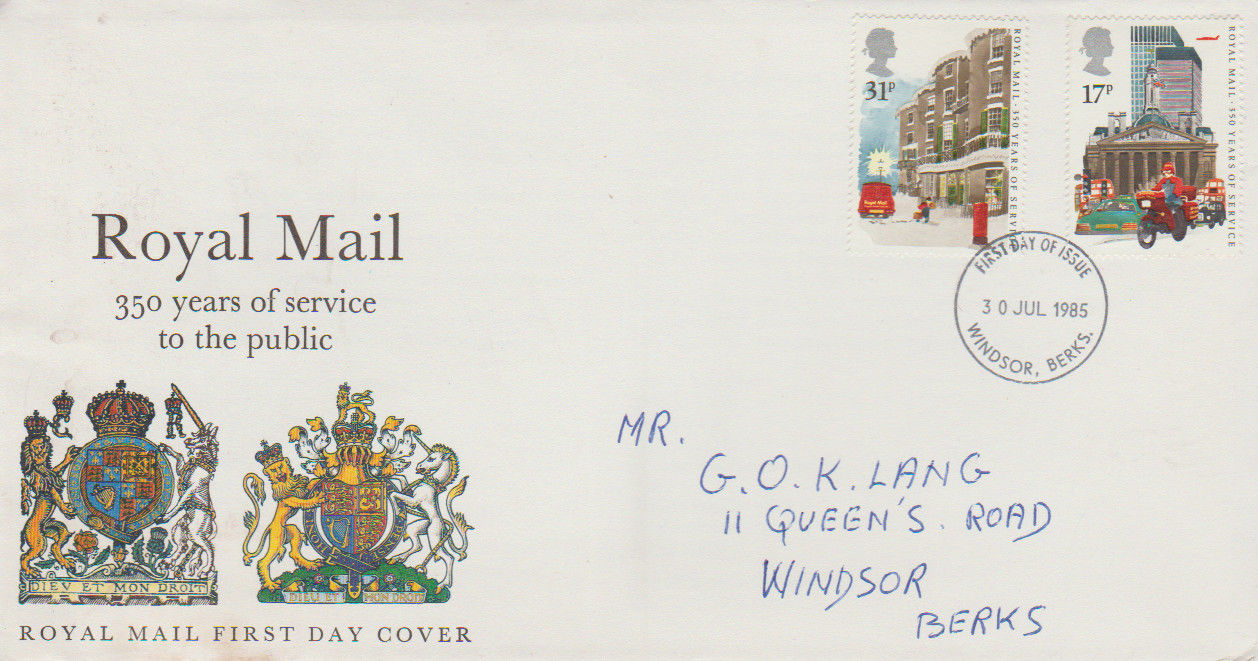 31P
ROYAL MAIL · 350 YEARS OF SERVI
Royal Mail
17P
ROYAL MAIL · 350 YEARS OF SERVICE
Royal Mail
350 years of service
to the public
FIRST DAY OF ISSUE
30 JUL 1985
WINDSOR, BERKS.
MR.
G.O.K. LANG
11 QUEEN'S. ROAD
WINDSOR
BERKS
DIEV ET MON DROIT
DIEU ET MON DROIT
ROYAL MAIL FIRST DAY COVER